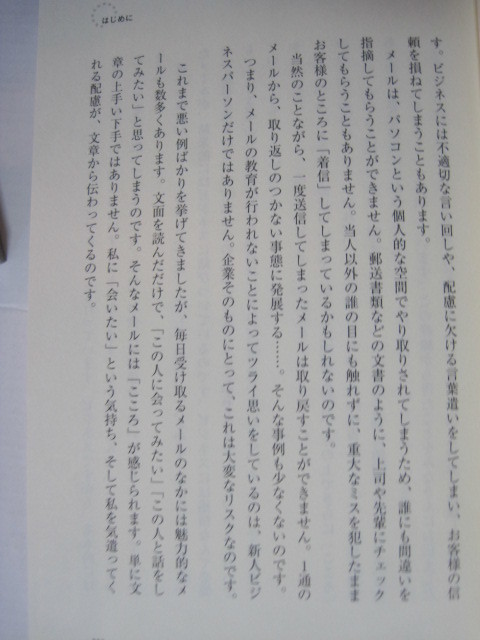 はじめに
す。ビジネスには不適切な言い回しや、配慮に欠ける言葉遣いをしてしまい、お客様の信
頼を損ねてしまうこともあります。
メールは、パソコンという個人的な空間でやり取りされてしまうため、誰にも間違いを
指摘してもらうことができません。郵送書類などの文書のように、上司や先輩にチェック
してもらうこともありません。当人以外の誰の目にも触れずに、重大なミスを犯したまま
お客様のところに「着信」してしまっているかもしれないのです。
当然のことながら、一度送信してしまったメールは取り戻すことができません。1通の
メールから、取り返しのつかない事態に発展する……。そんな事例も少なくないのです。
つまり、メールの教育が行われないことによってツライ思いをしているのは、新人ビジ
ネスパーソンだけではありません。企業そのものにとって、これは大変なリスクなのです。
これまで悪い例ばかりを挙げてきましたが、毎日受け取るメールのなかには魅力的なメ
ールも数多くあります。文面を読んだだけで、「この人に会ってみたい」「この人と話をし
てみたい」と思ってしまうのです。そんなメールには「こころ」が感じられます。単に文
章の上手い下手ではありません。私に「会いたい」という気持ち、そして私を気遣ってく
れる配慮が、文章から伝わってくるのです。